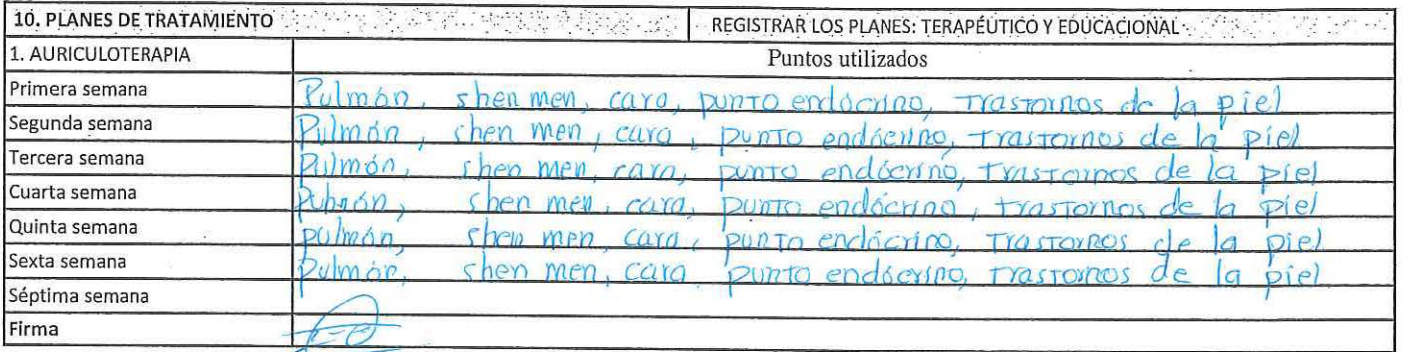 10. PLANES DE TRATAMIENTO REGISTRAR LOS PLANES: TERAPÉUTICO Y EDUCACIONAL
1. AURICULOTERAPIA Puntos utilizados
Primera semana Pulmón, shen men, cara, punto endócrino, Trastornos de la piel
Segunda semana Pulmón, shen men, cara, punto endócrino, trastornos de la piel
Tercera semana Pulmón, shen men, cara, punto endócrino, trastornos de la piel
Cuarta semana Pulmón, shen men, cara, punto endócrino, trastornos de la piel
Quinta semana pulmón, shen men, cara, punto endócrino, trastornos de la piel
Sexta semana Pulmón, shen men, cara punto endócrino, trastornos de la piel
Séptima semana
Firma